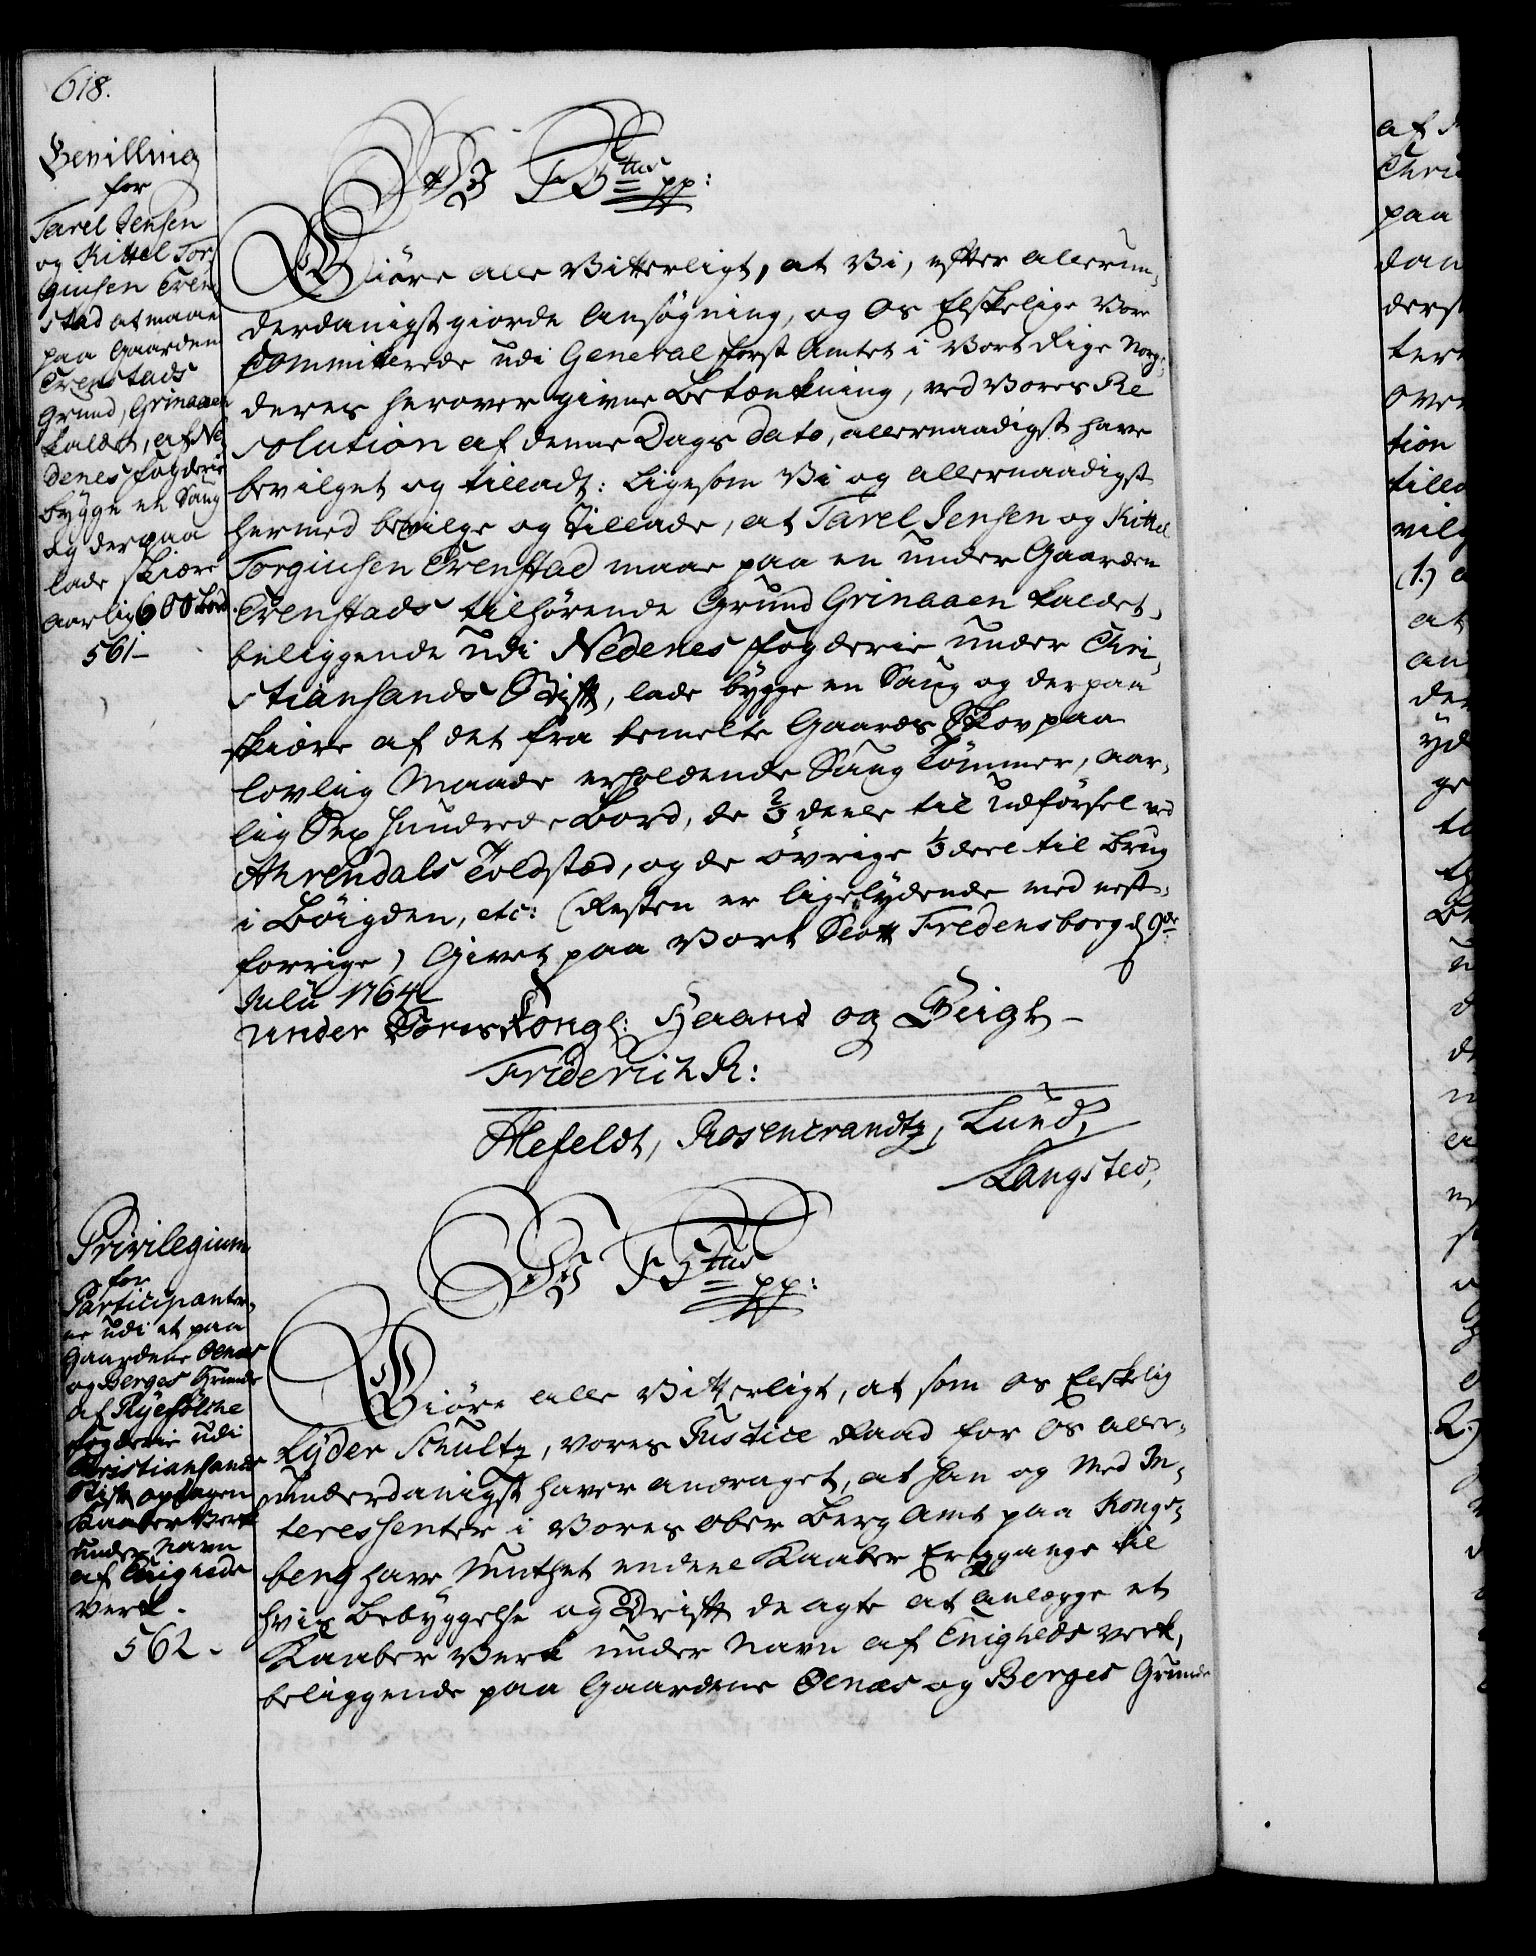 618.
Bevilling
for
Tarel Jensen
og Kittel Tor-
giusen Tren
stad at maae
paa Gaarden
Trenstads
Grund, Grinaaen
kaldet, af Ne
denes Fogderie
bygge en Saug
og derpaa
lade skiære
aarlig 600 Bord.
561-
W F 5tus pp:
Giöre alle Vitterligt, at Vi, efter allerun-
derdanigst giorde Ansøgning, og Os Elskelige Vore
Committerede udi General Forst Amtet i Vort Rige Norge,
deres herover givne Betænkning, ved Vores Re
solution af denne Dags Dato, allernaadigst have
bevilget og tilladt: Ligesom Vi og allernaadigst
hermed bevilge og tillade, at Tarel Jensen og Kittel
Torgiusen Trenstad maae paa en under Gaarden
Trenstads tilhørende Grund Grinaaen kaldet,
beliggende udi Nedenes Fogderie under Chri-
stiansands Stift, lade bygge en Saug og derpaa
skiære af det fra bemelte Gaards Skov paa
lovlig Maade erholdende Saug Tömmer, aar-
lig Sex hundrede Bord, de 2/3 deele til Udførsel ved
Ahrendals Toldsted, og de øvrige 1/3 deel til Brug
i Böigden, etc: (Resten er ligelydende med nest-
forrige) Givet paa Vort Slott Fredensborg d 9de
Julii 1764
Under Vores Kongl: Haand og Seigl-
Friderich R:
Alefeldt, Rosencrandtz, Lund,
Langsted,
Privilegium
for
Participanter-
ne udi et paa
Gaardene Oenæs
og Berges Grunde
af Ryefölche
Fogderie udi
Christiansands
Stift optagen
Kaaber Verk
under Navn
af Enigheds
Verk.
562-
W F 5tus pp:
Giöre alle Vitterligt, at som Os Elskelig
Lyder Schultz, vores Justice Raad for Os aller-
underdanigst haver andraget, at han og Med In-
teressenter i Vores Ober Berg Amt paa Kongs-
berg have Muthet endeel Kaaber Ertzgange til
hvis Bebyggelse og Drift de agte at anlegge et
Kaaber Verk under Navn af Enigheds Verk,
beliggende paa Gaardene Oenæs og Berges Grunde
paa
(1.)
at
2.)